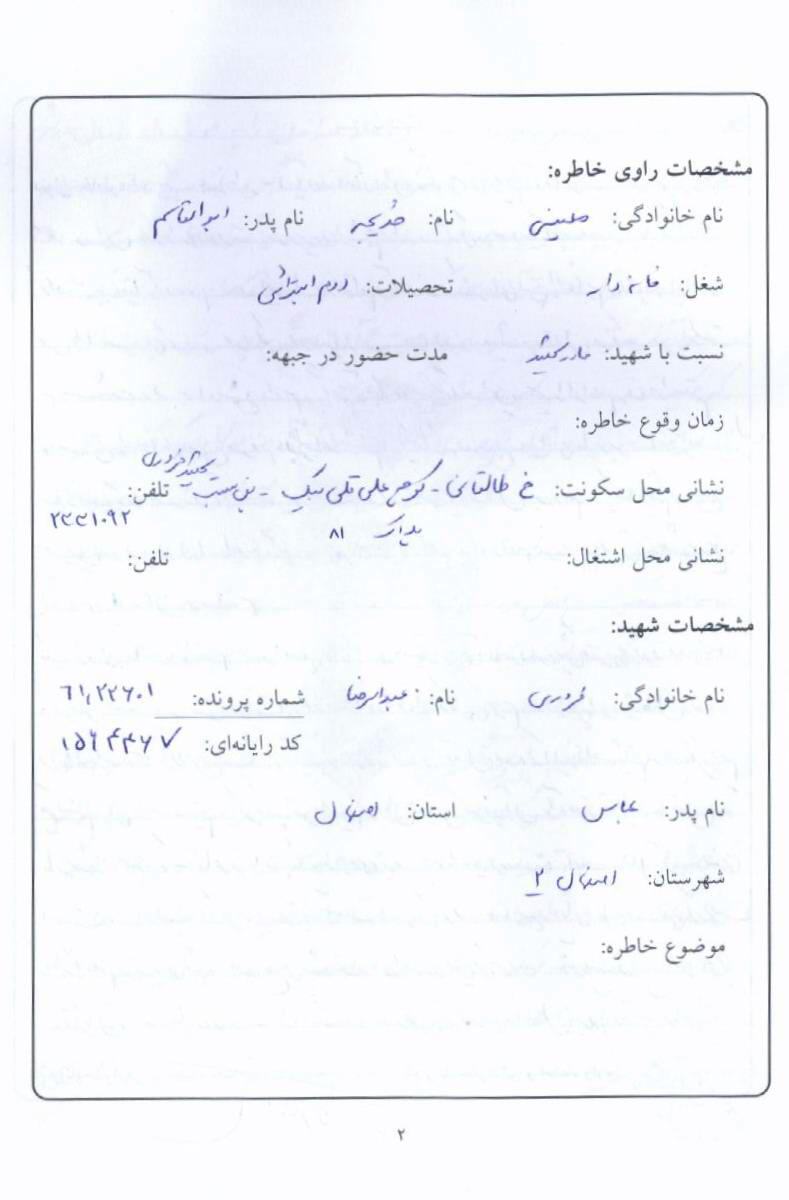 مشخصات راوی خاطره:
نام خانوادگی: معینی نام: خدیجه نام پدر: ابوالقاسم
شغل: خانه دار تحصیلات: دوم ابتدائی
نسبت با شهید: مادر شهید مدت حضور در جبهه:
زمان وقوع خاطره:
نشانی محل سکونت: خ طالقانی - کوچه علی قلی بیک - بن بست شهید تلفن:
پلاک ۸۱ ۲۲۲۱۰۹۲
نشانی محل اشتغال: تلفن:
مشخصات شهید:
نام خانوادگی: نام: عبدالرضا شماره پرونده: ۶۱۸۲۲۶۰۱
کد رایانه‌ای: ۱۵۶۴۴۶۷
نام پدر: عباس استان: اصفهان
شهرستان: اصفهان ۲
موضوع خاطره:
۲